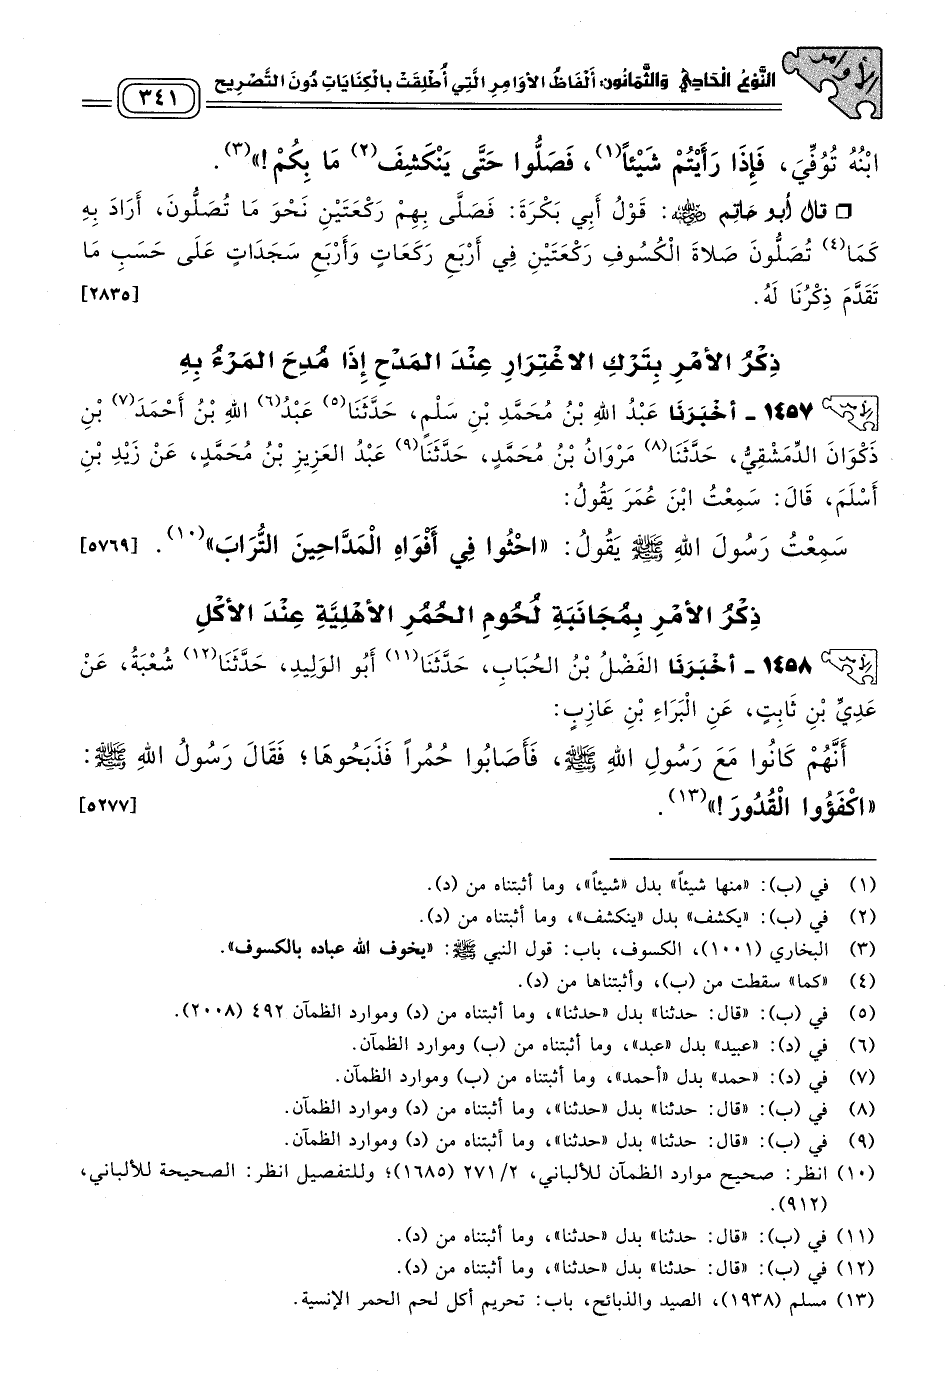 الأوامر
النَّوْعُ الْحَادِي وَالثَّمَانُون: أَلْفَاظُ الأَوَامِرِ الَّتِي أُطْلِقَتْ بالْكِنَايَاتِ دُونَ التَّصْرِيحِ
٣٤١
ابْنُهُ تُوُفِّيَ، فَإِذَا رَأَيْتُمْ شَيْئاً(١)، فَصَلُّوا حَتَّى يَنْكَشِفَ(٢) مَا بِكُمْ!»(٣).
□ قال أبو حاتِم ﵁: قَوْلُ أَبِي بَكْرَةَ: فَصَلَّى بِهِمْ رَكْعَتَيْنِ نَحْوَ مَا تُصَلُّونَ، أَرَادَ بِهِ
كَمَا(٤) تُصَلُّونَ صَلاةَ الْكُسُوفِ رَكْعَتَيْنِ فِي أَرْبَعِ رَكَعَاتٍ وَأَرْبَعِ سَجَدَاتٍ عَلَى حَسَبِ مَا
تَقَدَّمَ ذِكْرُنَا لَهُ. [٢٨٣٥]
ذِكْرُ الأَمْرِ بِتَرْكِ الاغْتِرَارِ عِنْدَ المَدْحِ إِذَا مُدِحَ المَرْءُ بِهِ
١٤٥٧ ـ أَخْبَرَنَا عَبْدُ اللهِ بْنُ مُحَمَّدِ بْنِ سَلْمٍ، حَدَّثَنَا(٥) عَبْدُ(٦) اللهِ بْنُ أَحْمَدَ(٧) بْنِ
ذَكْوَانَ الدِّمَشْقِيُّ، حَدَّثَنَا(٨) مَرْوَانُ بْنُ مُحَمَّدٍ، حَدَّثَنَا(٩) عَبْدُ العَزِيزِ بْنُ مُحَمَّدٍ، عَنْ زَيْدِ بْنِ
أَسْلَمَ، قَالَ: سَمِعْتُ ابْنَ عُمَرَ يَقُولُ:
سَمِعْتُ رَسُولَ اللهِ ﷺ يَقُولُ: «احْثُوا فِي أَفْوَاهِ الْمَدَّاحِينَ التُّرَابَ»(١٠). [٥٧٦٩]
ذِكْرُ الأَمْرِ بِمُجَانَبَةِ لُحُومِ الحُمُرِ الأَهْلِيَّةِ عِنْدَ الأَكْلِ
١٤٥٨ ـ أَخْبَرَنَا الفَضْلُ بْنُ الحُبَابِ، حَدَّثَنَا(١١) أَبُو الوَلِيدِ، حَدَّثَنَا(١٢) شُعْبَةُ، عَنْ
عَدِيِّ بْنِ ثَابِتٍ، عَنِ الْبَرَاءِ بْنِ عَازِبٍ:
أَنَّهُمْ كَانُوا مَعَ رَسُولِ اللهِ ﷺ، فَأَصَابُوا حُمُراً فَذَبَحُوهَا؛ فَقَالَ رَسُولُ اللهِ ﷺ:
«اكْفَؤُوا الْقُدُورَ!»(١٣). [٥٢٧٧]
(١) في (ب): «منها شيئاً» بدل «شيئاً»، وما أثبتناه من (د).
(٢) في (ب): «يكشف» بدل «ينكشف»، وما أثبتناه من (د).
(٣) البخاري (١٠٠١)، الكسوف، باب: قول النبي ﷺ: «يخوف الله عباده بالكسوف».
(٤) «كما» سقطت من (ب)، وأثبتناها من (د).
(٥) في (ب): «قال: حدثنا» بدل «حدثنا»، وما أثبتناه من (د) وموارد الظمآن ٤٩٢ (٢٠٠٨).
(٦) في (د): «عبيد» بدل «عبد»، وما أثبتناه من (ب) وموارد الظمآن.
(٧) في (د): «حمد» بدل «أحمد»، وما أثبتناه من (ب) وموارد الظمآن.
(٨) في (ب): «قال: حدثنا» بدل «حدثنا»، وما أثبتناه من (د) وموارد الظمآن.
(٩) في (ب): «قال: حدثنا» بدل «حدثنا»، وما أثبتناه من (د) وموارد الظمآن.
(١٠) انظر: صحيح موارد الظمآن للألباني، ٢/ ٢٧١ (١٦٨٥)؛ وللتفصيل انظر: الصحيحة للألباني،
(٩١٢).
(١١) في (ب): «قال: حدثنا» بدل «حدثنا»، وما أثبتناه من (د).
(١٢) في (ب): «قال: حدثنا» بدل «حدثنا»، وما أثبتناه من (د).
(١٣) مسلم (١٩٣٨)، الصيد والذبائح، باب: تحريم أكل لحم الحمر الإنسية.